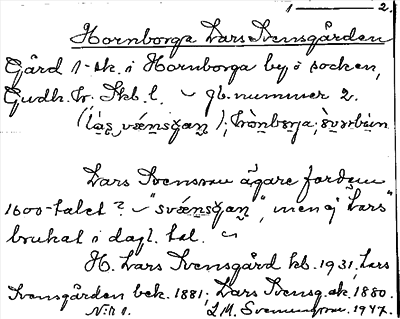 1 — 2.
Hornborga Lars Svensgården
Gård 1 sk. i Hornborga by o socken,
Gudh. hr. Skb. l. gb. nummer 2.
Lars Svensson ägare fordom
1600-talet? men ej "Lars"
brukat i dagl. tal.
H. Lars Svensgård kb. 1931. Lars
Svensgården bek. 1881; Lars Svensg. ek. 1880.
N:r 1. L.M. Svenungsson. 1947.